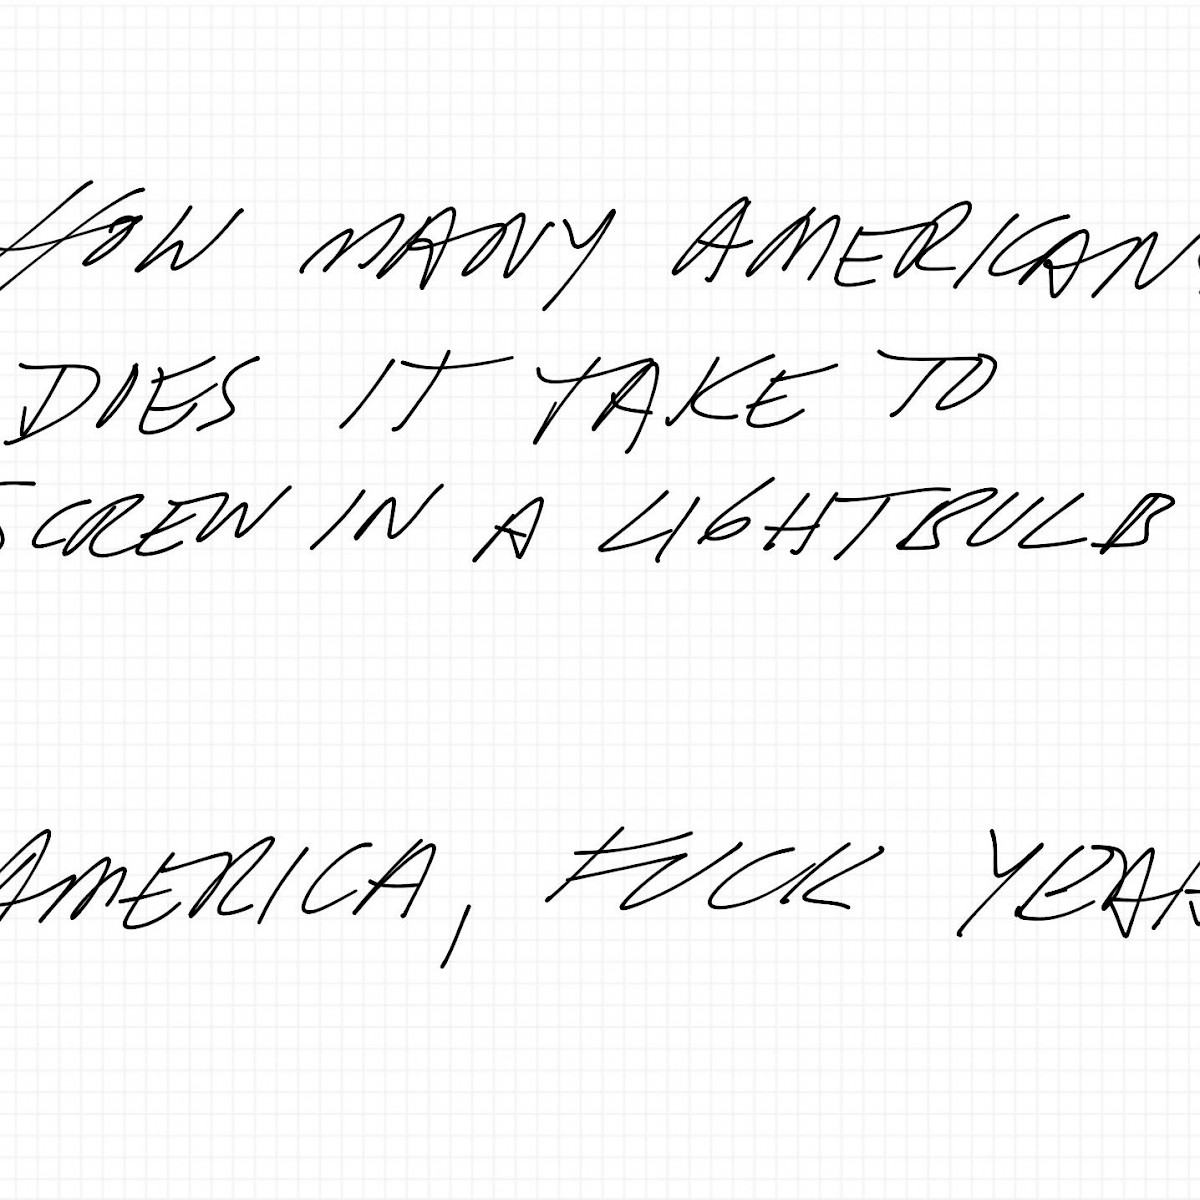 HOW MANY AMERICANS
DOES IT TAKE TO
SCREW IN A LIGHTBULB
AMERICA, FUCK YEAH